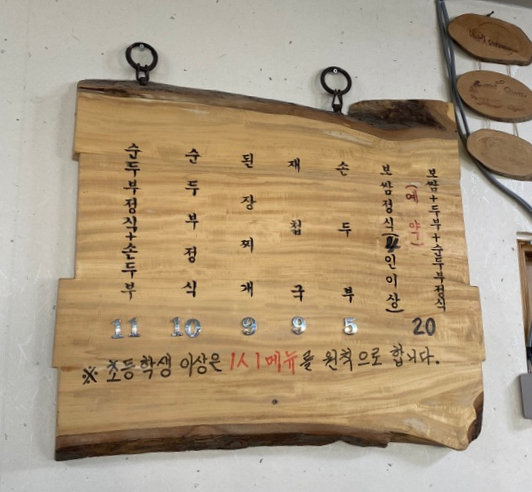 순두부정식+손두부
순두부정식
된장찌개
재첩국
손두부
보쌈정식(4인이상)
(예약)
보쌈+두부+순두부정식
11 10 9 9 5 20
※ 초등학생 이상은 1人1메뉴를 원칙으로 합니다.